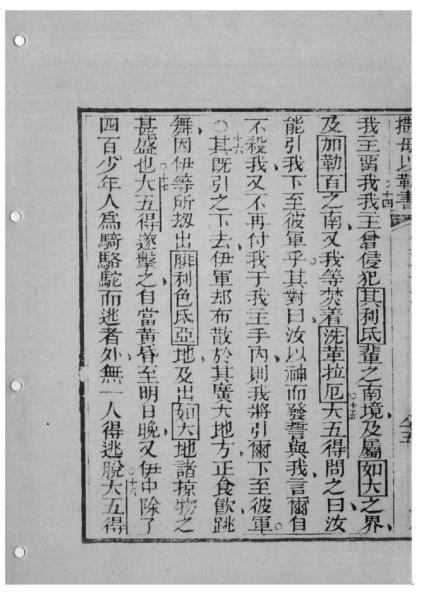 撒母以勒書
十四
我主畱我我主曾侵犯其利氐輩之南境及屬如大之界
及加勒百之南又我等焚着洗革拉厄大五得問之曰汝
十五
能引我下至彼軍乎其對曰汝以神而發誓與我言爾自
不殺我又不再付我于我主手內則我將引爾下至彼軍。
十六
○其既引之下去伊軍却布散於其廣大地方正食飲跳
舞因伊等所刼出腓利色氐亞地及出如大地諸掠物之
甚盛也大五得遂擊之自當黃昏至明日晚又伊中除了
十七
四百少年人爲騎駱駝而逃者外無一人得逃脫大五得
十八